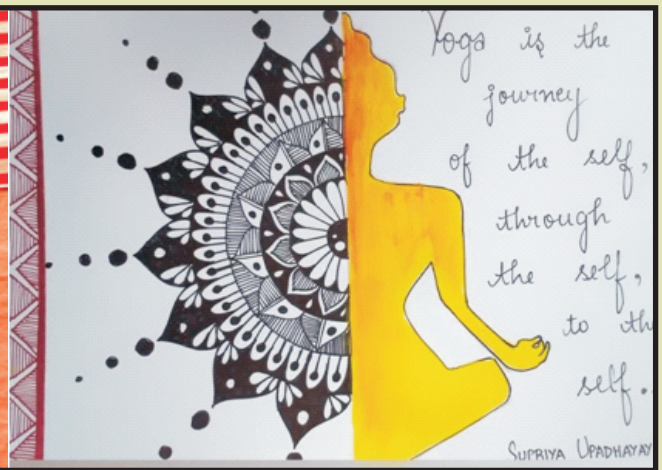 Yoga is the
journey
of the self,
through
the self,
to the
self.
SUPRIYA UPADHAYAY